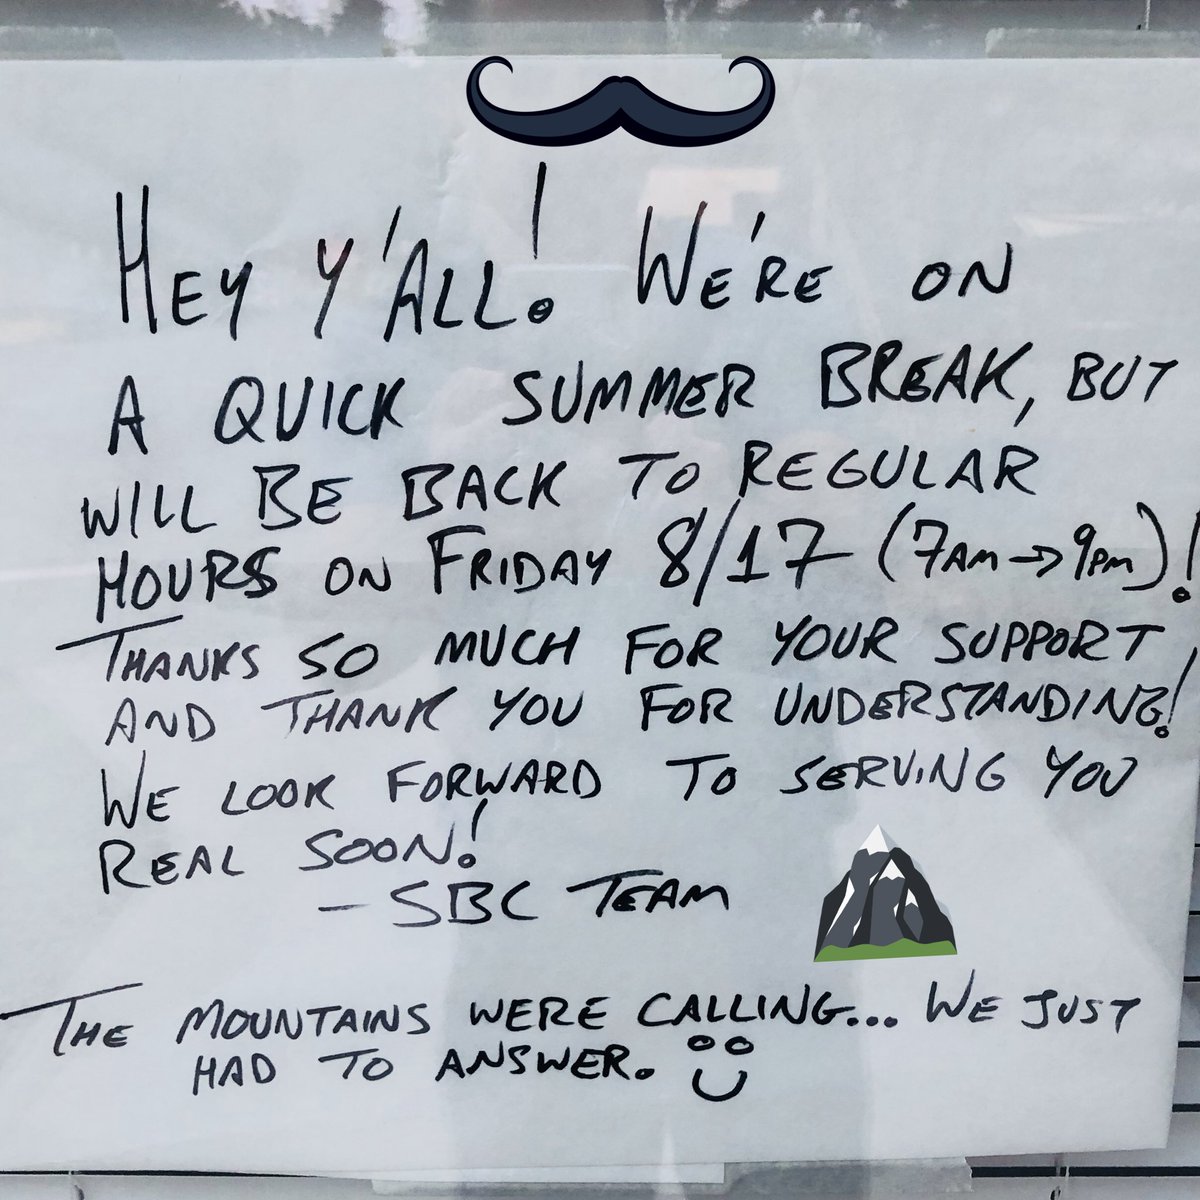 HEY Y'ALL! WE'RE ON
A QUICK SUMMER BREAK, BUT
WILL BE BACK TO REGULAR
HOURS ON FRIDAY 8/17 (7AM→9PM)!
THANKS SO MUCH FOR YOUR SUPPORT
AND THANK YOU FOR UNDERSTANDING!
WE LOOK FORWARD TO SERVING YOU
REAL SOON!
- SBC TEAM
THE MOUNTAINS WERE CALLING... WE JUST
HAD TO ANSWER.